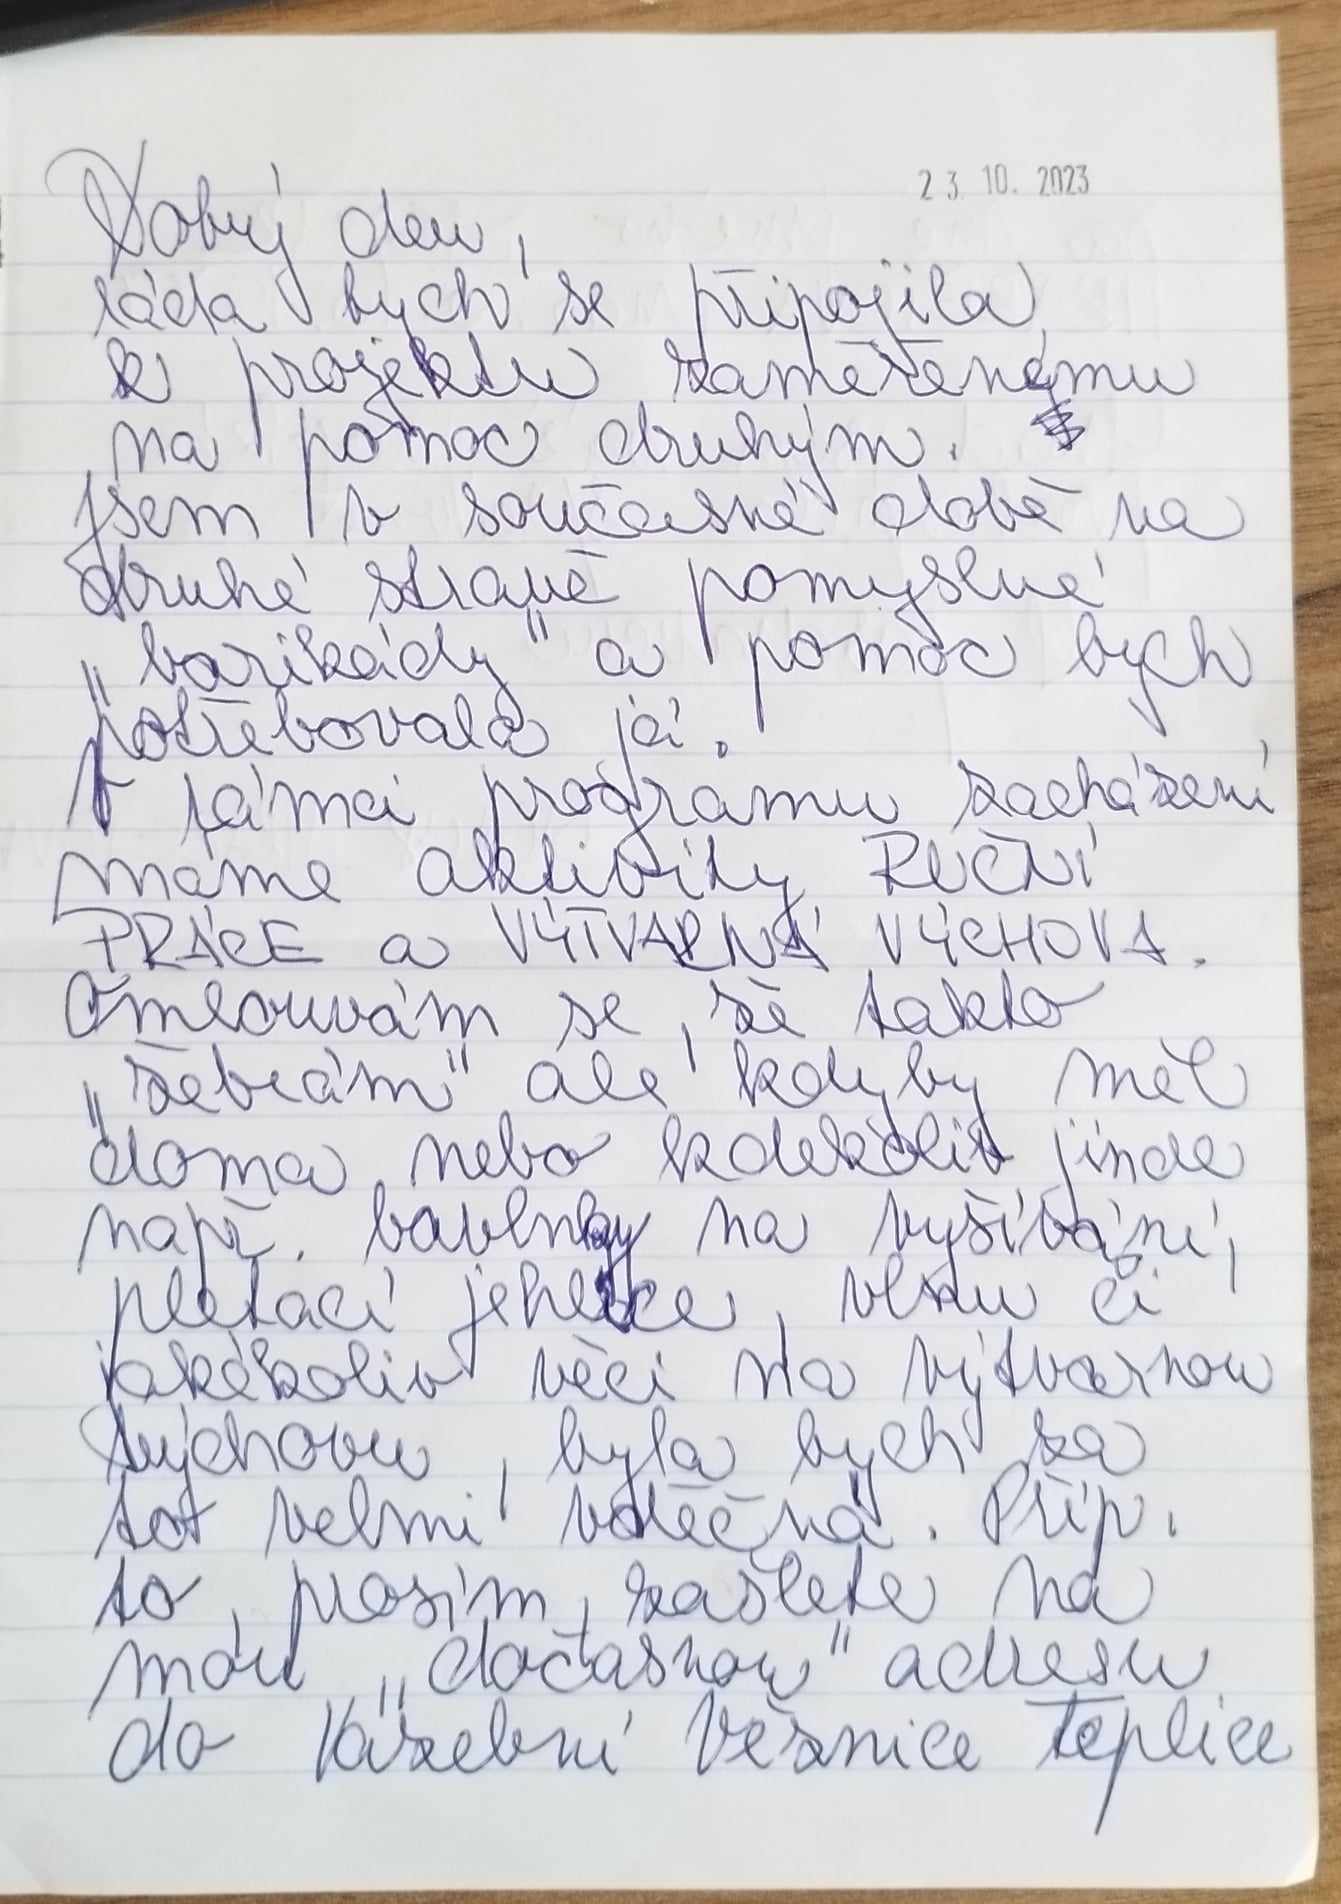 23. 10. 2023
Dobrý den,
ráda bych se připojila
k projektu zaměřenému
na pomoc druhým.
Jsem v současné době na
druhé straně pomyslné
„barikády" a pomoc bych
potřebovala já.
V rámci programu zacházení
máme aktivity RUČNÍ
PRÁCE a VÝTVARNÁ VÝCHOVA.
Omlouvám se, že takto
„žebrám" ale kdyby měl
doma nebo kdekoliv jinde
např. bavlnky na vyšívání,
pletací jehlice, vlnu či
jakékoliv věci na výtvarnou
výchovu, byla bych za
to velmi vděčná. Příp.
to, prosím, zašlete na
mou „dočasnou" adresu
do Vazební Věznice Teplice